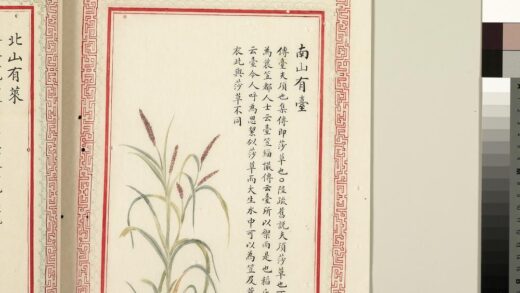 南山有臺
傳臺夫須也集傳即莎草也○陸疏舊說夫須莎草也
為蓑笠都人士云臺笠緇撮傳云臺所以禦雨是也稻
云臺今人呼為思似莎草而大生水中可以為笠及
衣此與莎草不同
北山有萊